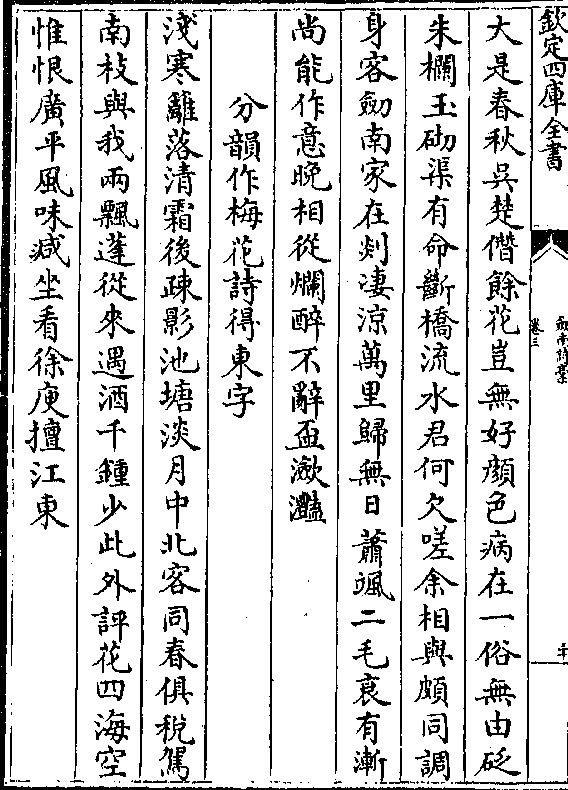 欽定四庫全書
劒南詩藁
卷三
大是春秋吳楚僭餘花豈無好顔色病在一俗無由砭
朱欄玉砌渠有命斷橋流水君何欠嗟余相與頗同調
身客劒南家在剡凄涼萬里歸無日蕭颯二毛衰有漸
尚能作意晚相從爛醉不辭盃瀲灩
分韻作梅花詩得東字
淺寒籬落清霜後疎影池塘淡月中北客同春俱税駕
南枝與我兩飄蓬從來遇酒千鍾少此外評花四海空
惟恨廣平風味減坐看徐庾擅江東